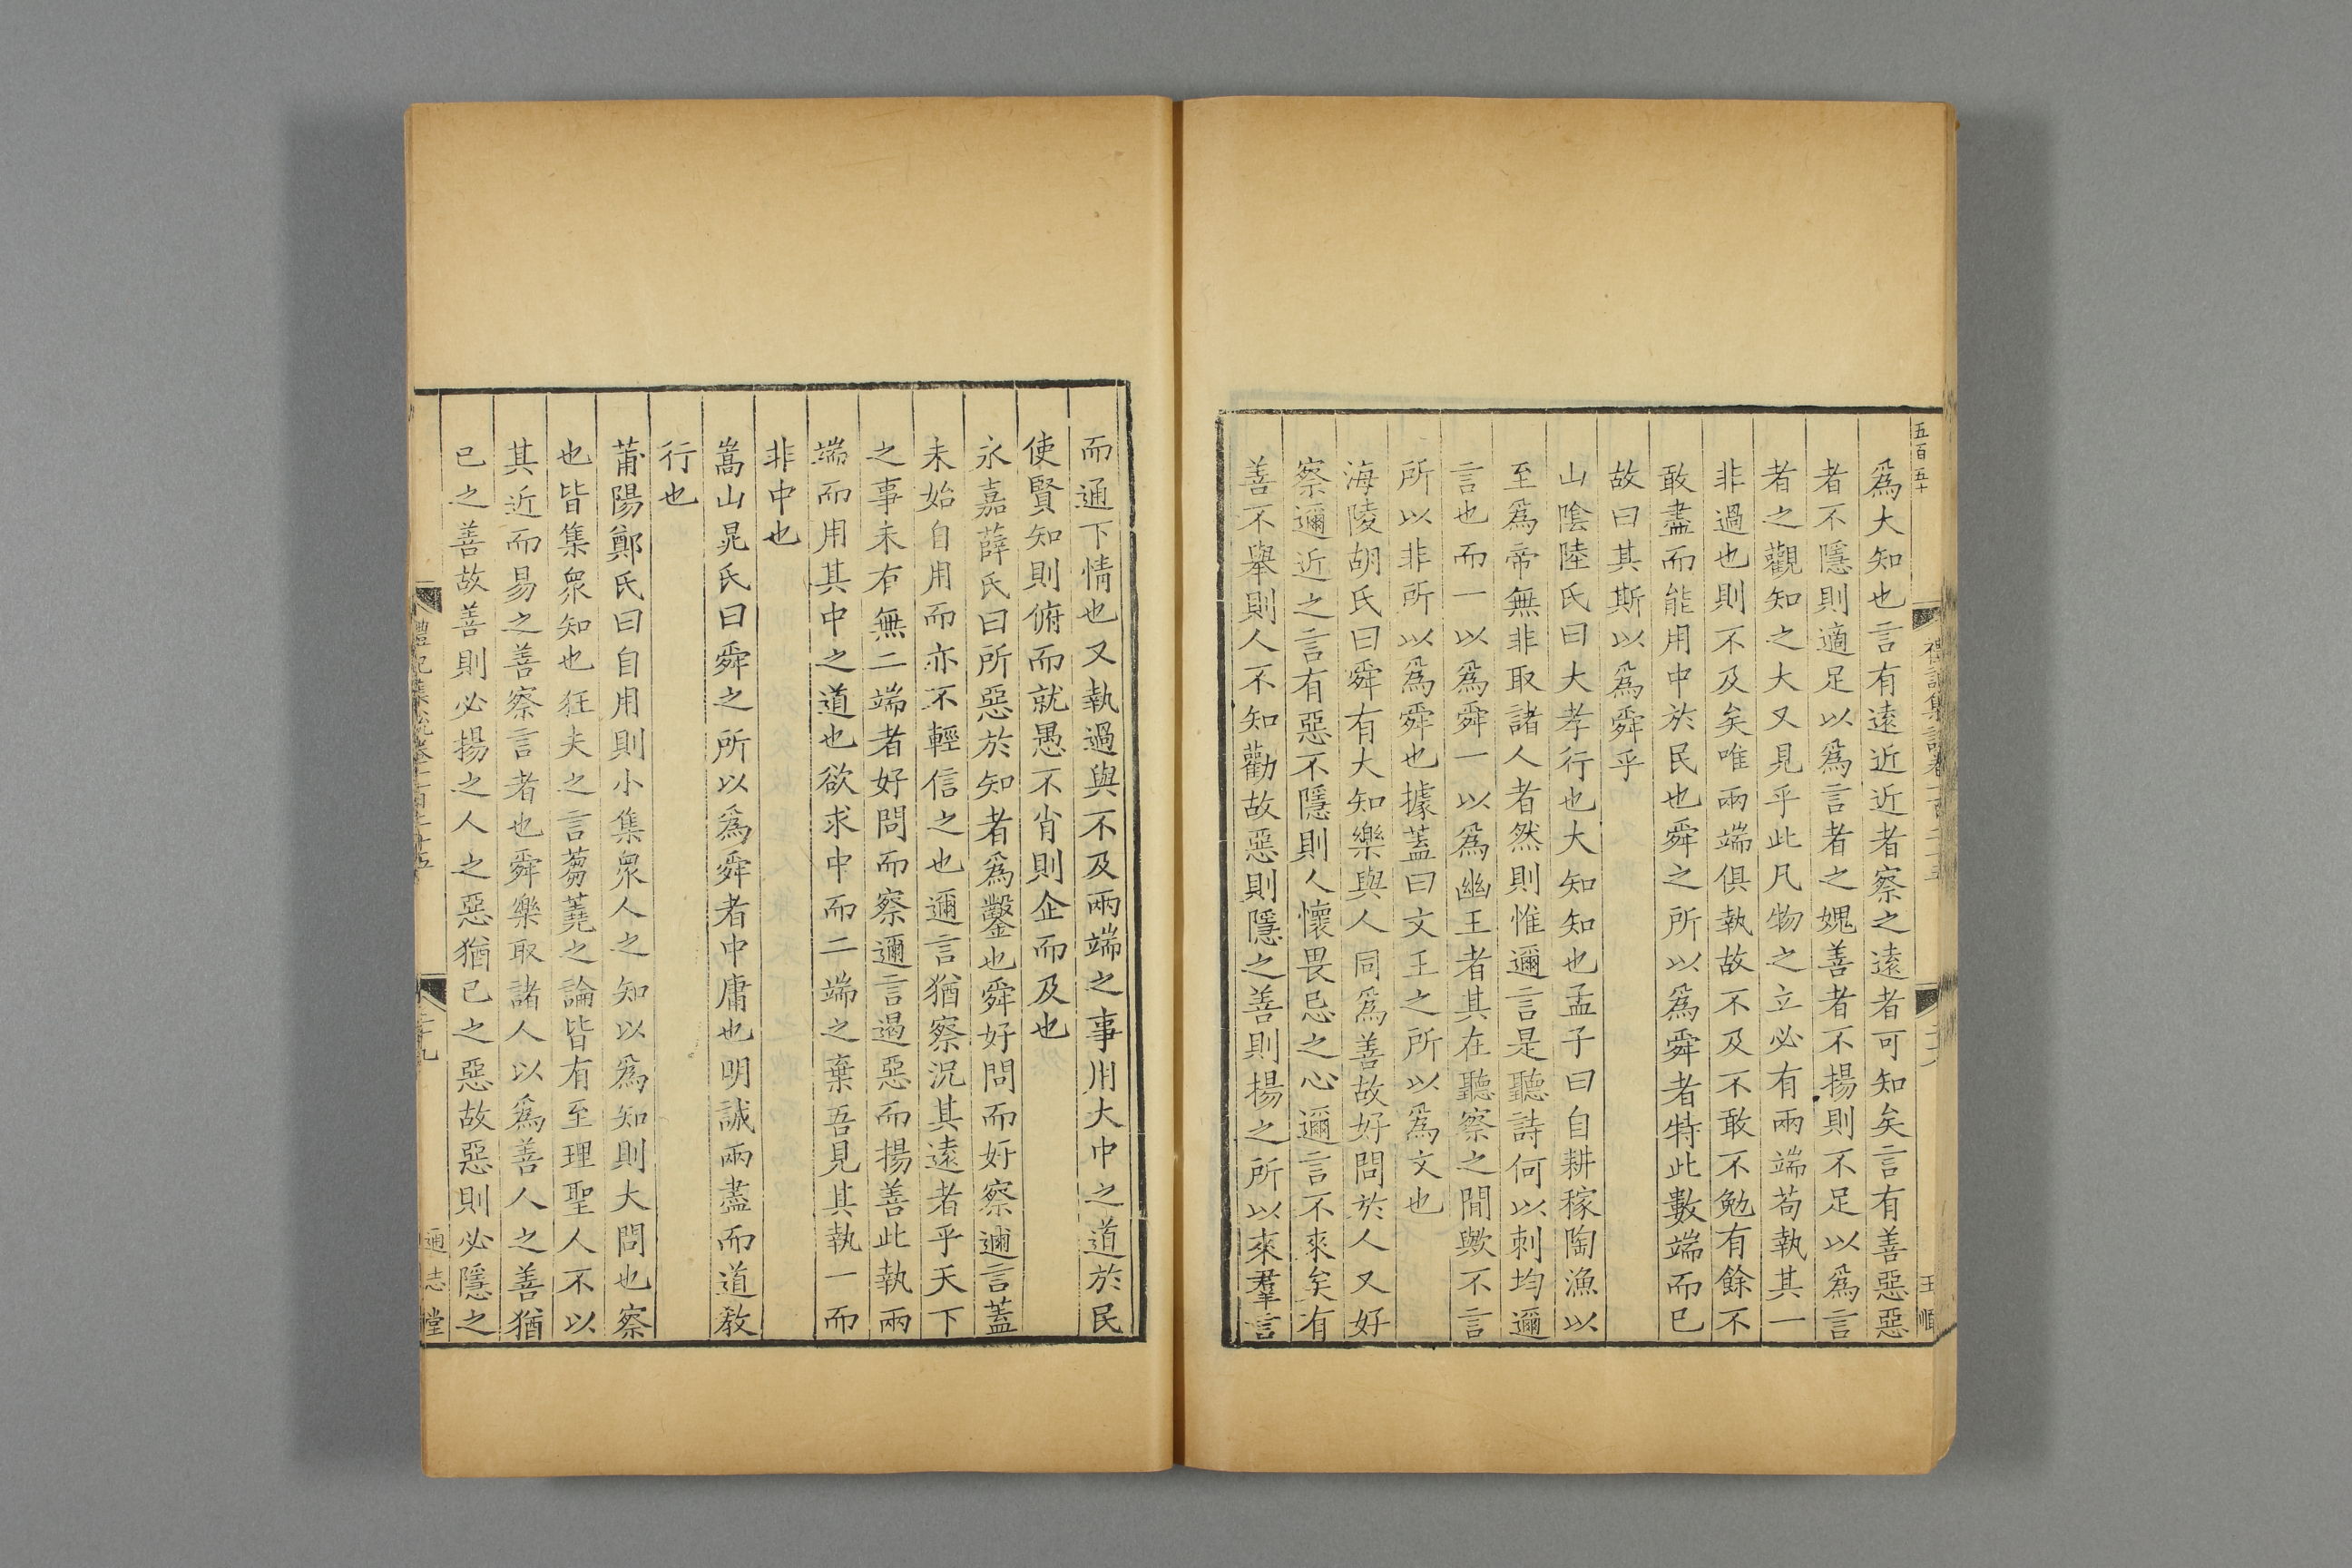 五百五十
禮記集說卷一百二十五
王順
爲大知也言有遠近近者察之遠者可知矣言有善惡惡
者不隱則適足以爲言者之媿善者不揚則不足以爲言
者之觀知之大又見乎此凡物之立必有兩端苟執其一
非過也則不及矣唯兩端俱執故不及不敢不勉有餘不
敢盡而能用中於民也舜之所以爲舜者特此數端而已
故曰其斯以爲舜乎
山陰陸氏曰大孝行也大知知也孟子曰自耕稼陶漁以
至爲帝無非取諸人者然則惟邇言是聽詩何以刺均邇
言也而一以爲舜一以爲幽王者其在聽察之閒歟不言
所以非所以爲舜也據蓋曰文王之所以爲文也
海陵胡氏曰舜有大知樂與人同爲善故好問於人又好
察邇近之言有惡不隱則人懷畏忌之心邇言不來矣有
善不舉則人不知勸故惡則隱之善則揚之所以來羣言
而通下情也又執過與不及兩端之事用大中之道於民
使賢知則俯而就愚不肖則企而及也
永嘉薛氏曰所惡於知者爲鑿也舜好問而好察邇言蓋
未始自用而亦不輕信之也邇言猶察況其遠者乎天下
之事未有無二端者好問而察邇言遏惡而揚善此執兩
端而用其中之道也欲求中而二端之棄吾見其執一而
非中也
嵩山晁氏曰舜之所以爲舜者中庸也明誠兩盡而道教
行也
莆陽鄭氏曰自用則小集衆人之知以爲知則大問也察
也皆集衆知也狂夫之言蒭蕘之論皆有至理聖人不以
其近而易之善察言者也舜樂取諸人以爲善人之善猶
已之善故善則必揚之人之惡猶已之惡故惡則必隱之
禮記集說卷一百二十五
二十九
通志堂